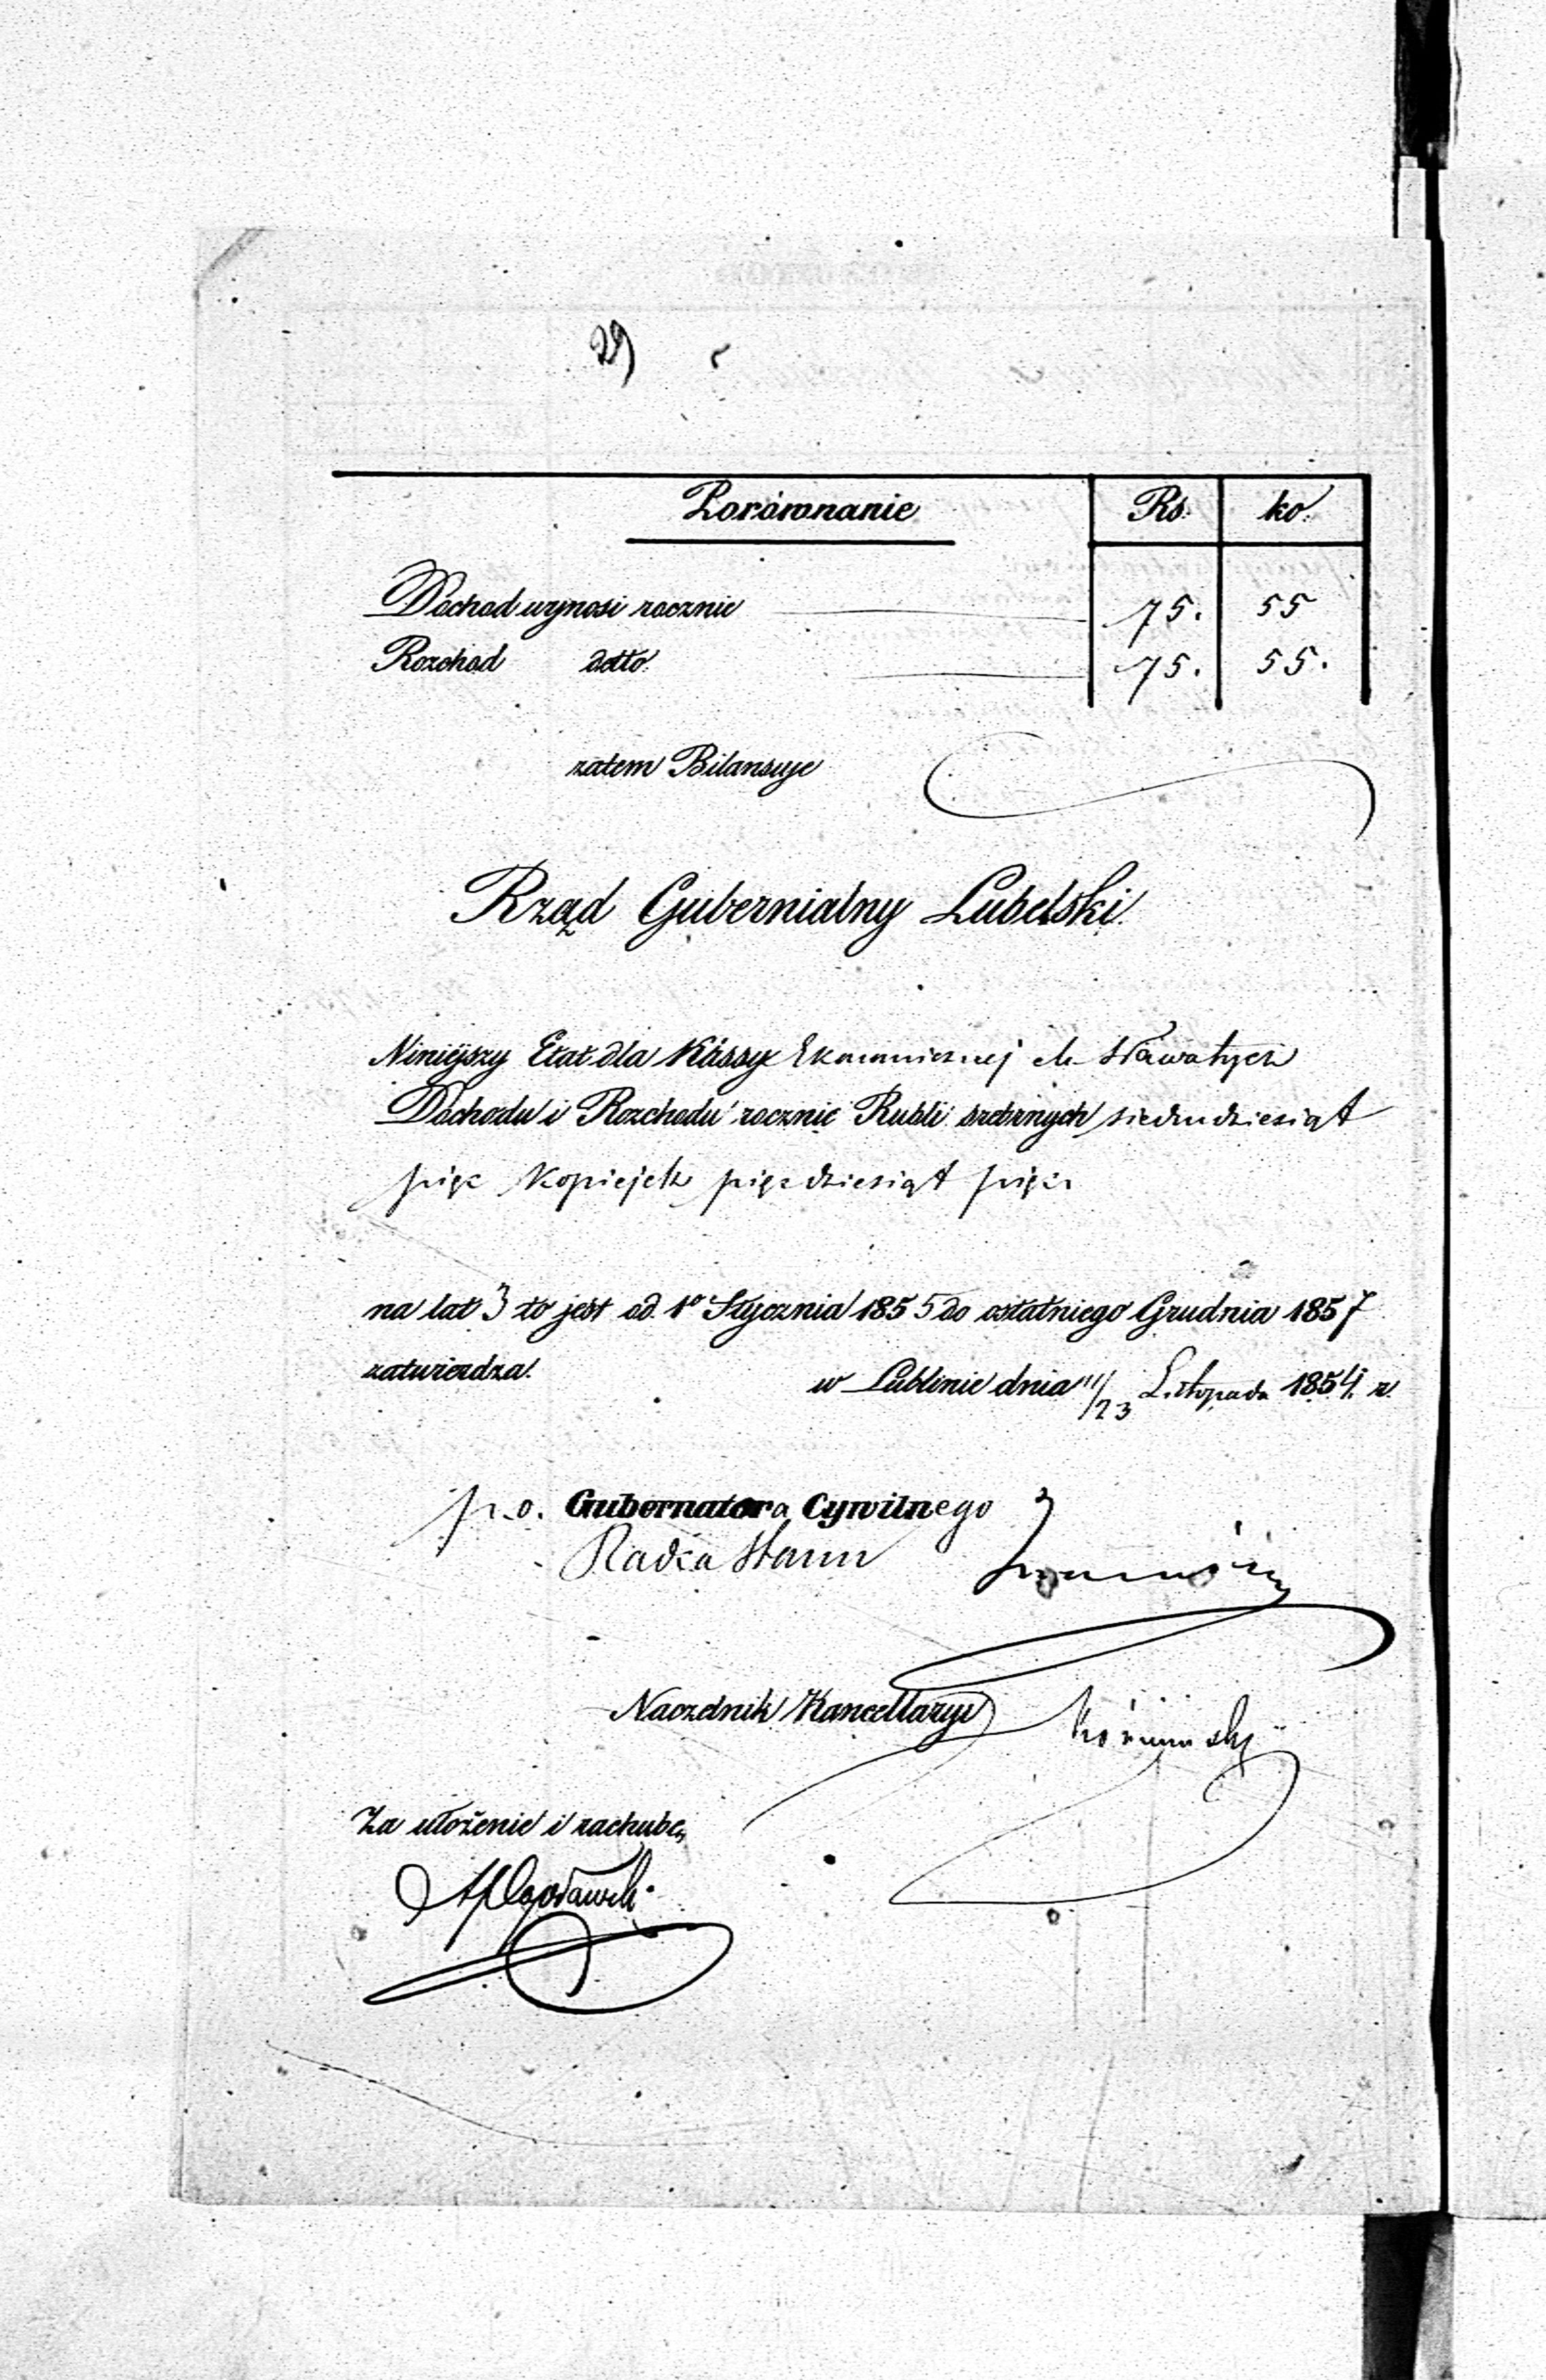 29
Porównanie Rs. ko.
Dochod wynosi rocznie 75. 55
Rozchod detto 75. 55.
zatem Bilansuje
Rząd Gubernialny Lubelski.
Niniejszy Etat dla Kassy Ekonomicznej M. Sławatycz
Dochodu i Rozchodu rocznie Rubli srebrnych siedmdziesiąt
pięć Kopiejek pięćdziesiąt pięć
na lat 3 to jest od 1º Stycznia 1855 do ostatniego Grudnia 1857
zatwierdza.
w Lublinie dnia 11/23 Listopada 1854. r.
p.o. Gubernatora Cywilnego
Radca Stanu
Naczelnik Kancellaryi
Za ułożenie i rachubę